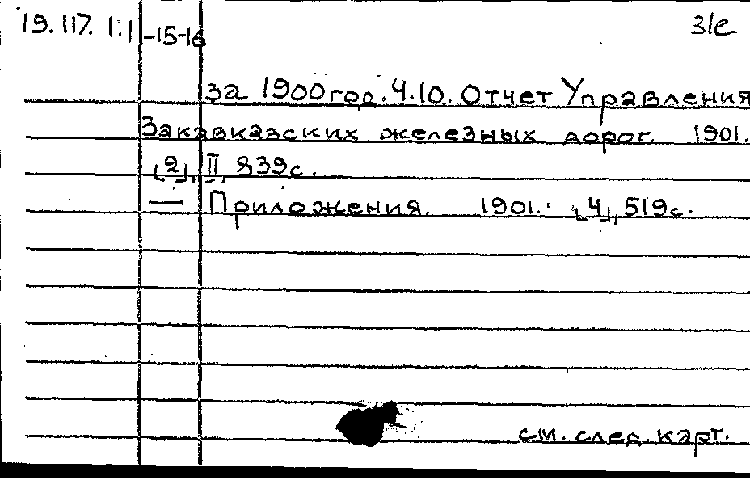 19.117.1:1 -15-16 31е
за 1900 год. Ч.10. Отчет Управления
Закавказских железных дорог. 1901.
[2], II, 839с.
— Приложения. 1901. [4], 519с.
см. след. карт.